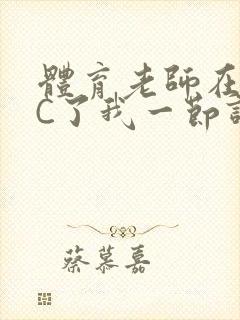 體育老師在
C了我一節
蔡慕嘉